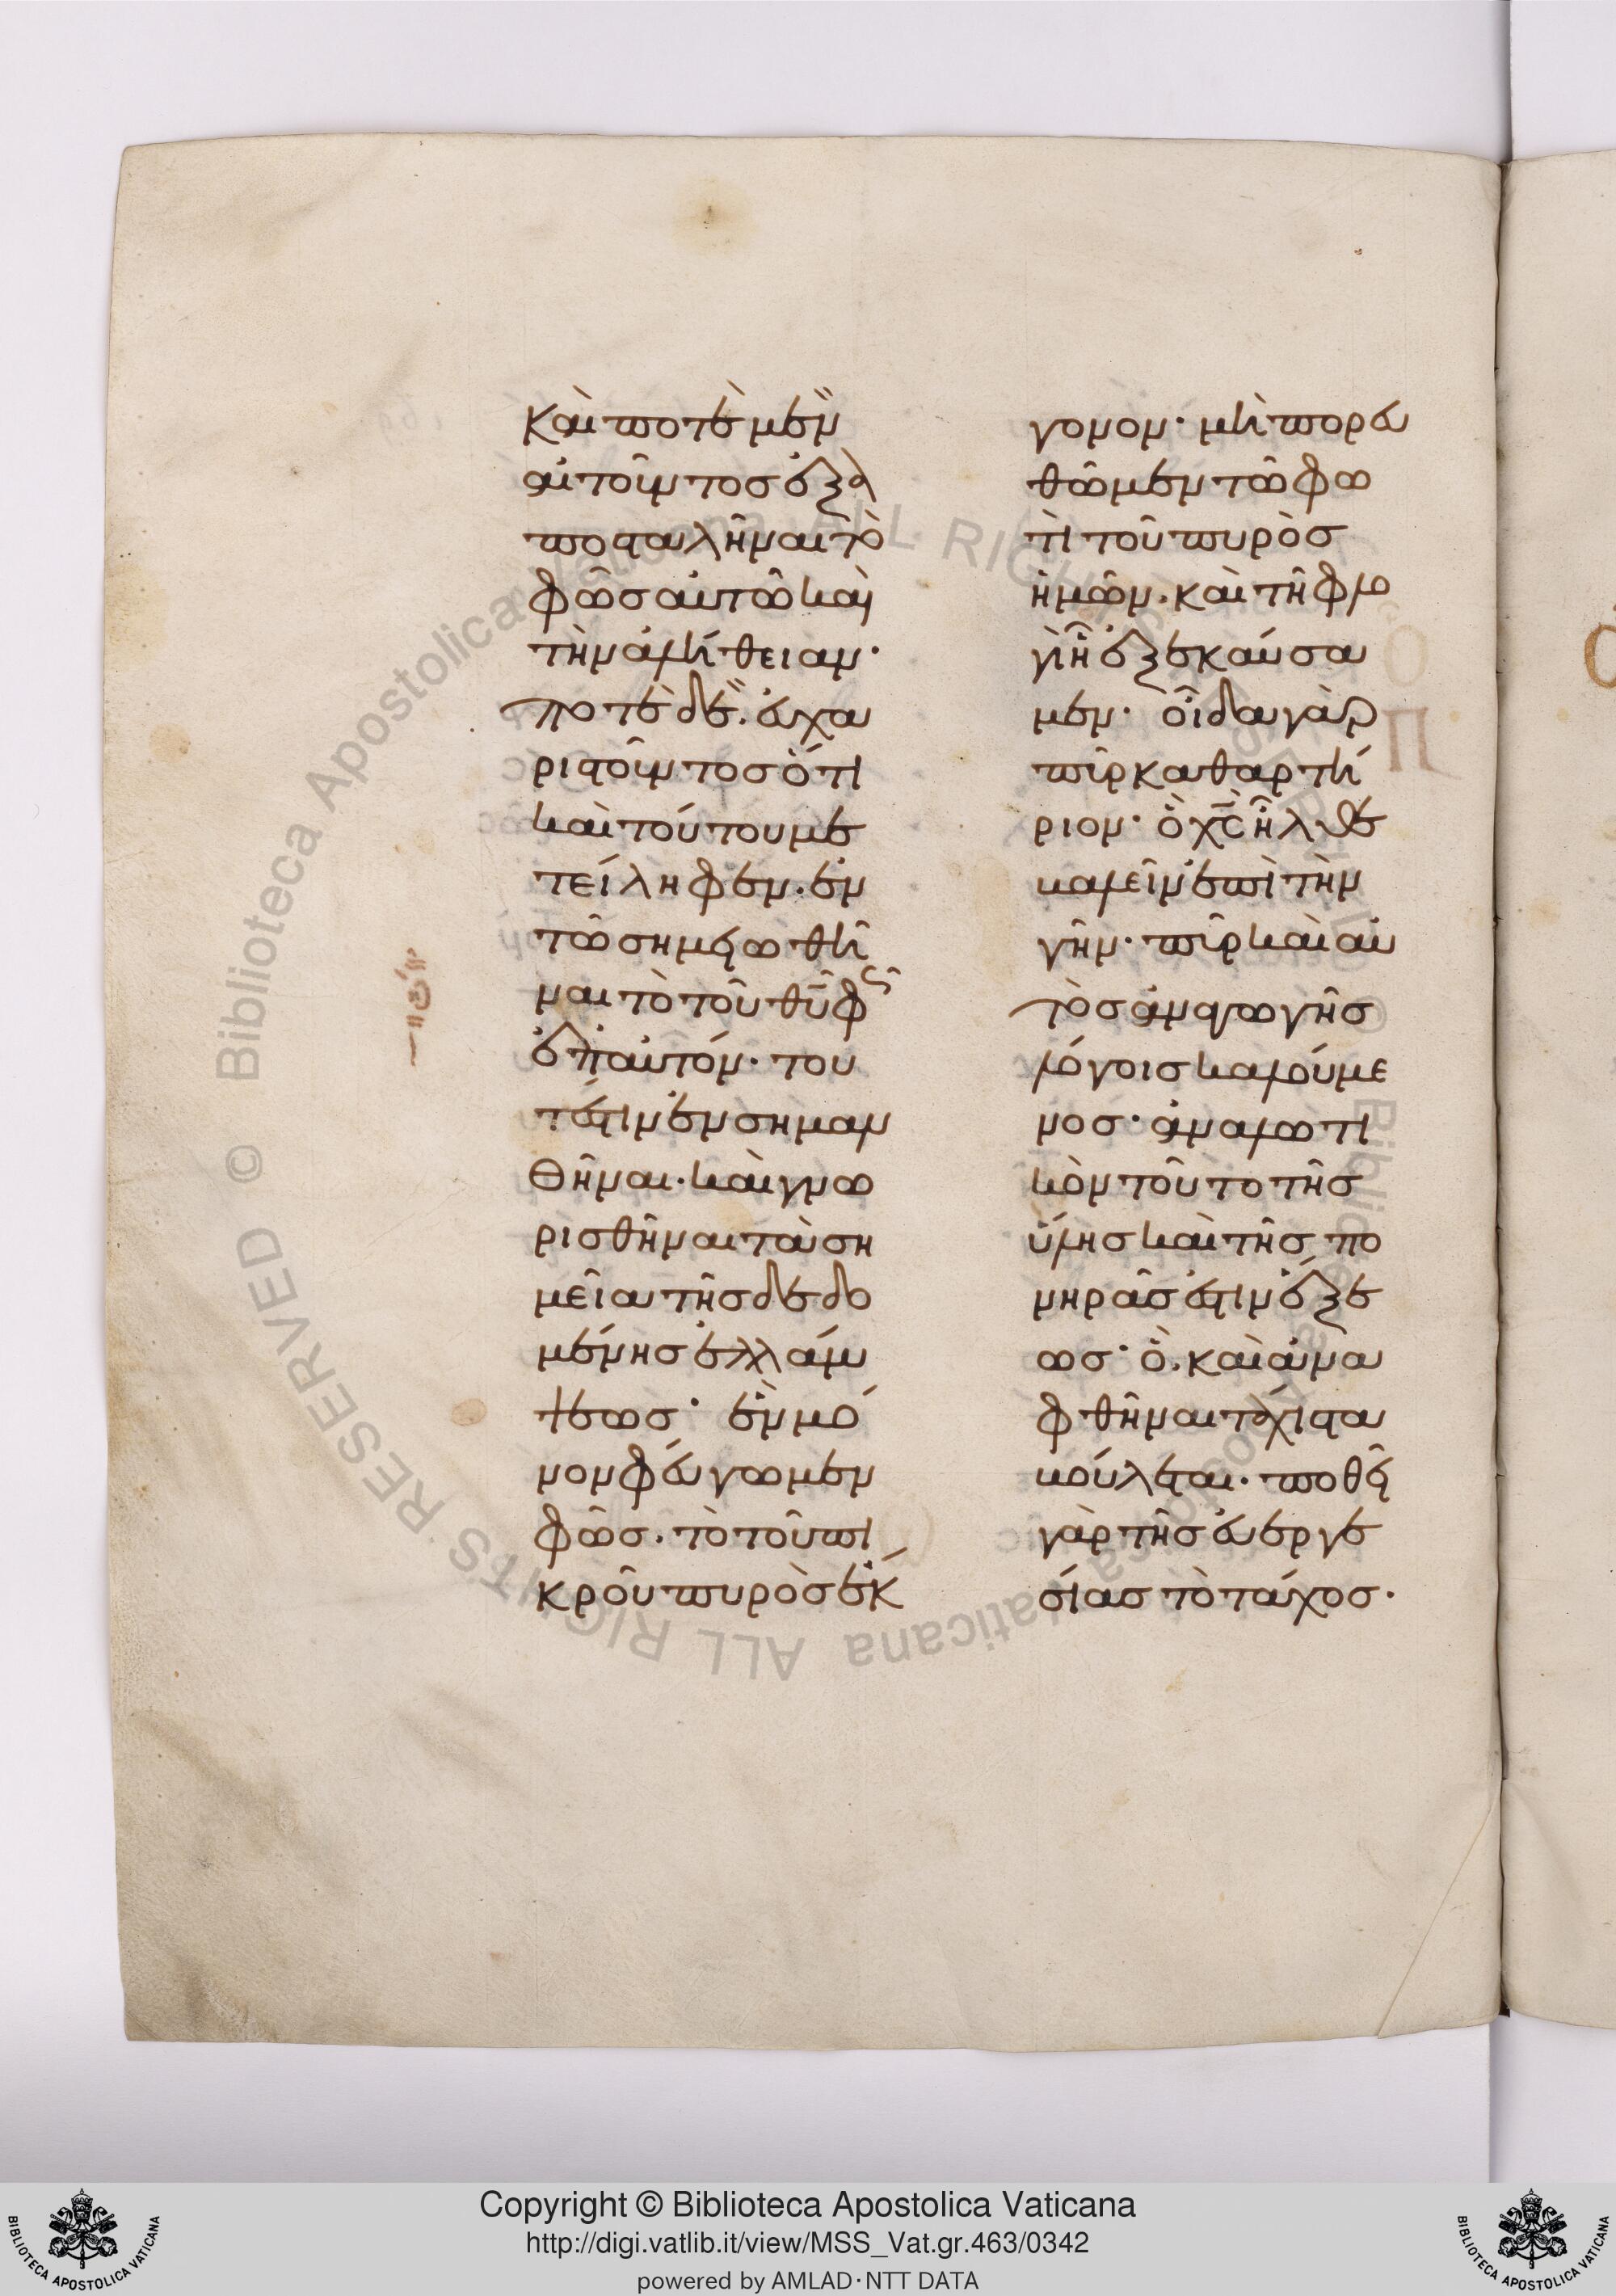 καὶ ποτὲ μὲν
αἰτοῦντος ἐξα
ποσταλῆναι τὸ
φῶς αὐτῶ καὶ
τὴν ἀλήθειαν·
ποτὲ δὲ. εὐχα
ριστοῦντος ὅτι
καὶ τούτου με
τείληφεν. ἐν
τῶ σημειωθῆ
ναι τὸ τοῦ θῦ φῶς
ἐπ' αὐτόν· του
τέστιν ἐνσημαν
θῆναι. καὶ γνω
ρισθῆναι τὰ ση
μεῖα τῆς δεδο
μένης ἐλλάμ
ψεως· ἓν μό
νον φεύγωμεν
φῶς. τὸ τοῦ πι
κροῦ πυρὸς ἔκ
γονον· μὴ πορευ
θῶμεν τῶ φω
τὶ τοῦ πυρὸς
ἡμῶν. καὶ τῆ φλο
γὶ ἧ ἐξεκαύσα
μεν· οἶδα γὰρ
πῦρ καθαρτή
ριον· ὃ χς ἦλθε
καλεῖν ἐπὶ τὴν
γῆν· πῦρ καὶ αὐ
τὸς ἀναγωγῆς
λόγοις καλούμε
νος· ἀναλωτι
κὸν τοῦτο τῆς
ὕλης καὶ τῆς πο
νηρᾶς ἐστιν ἕξε
ως· ὃ. καὶ ἀνα
φθῆναι τάχιστα
βούλεται. ποθεῖ
γὰρ τῆς εὐεργε
σίας τὸ τάχος.
Copyright © Biblioteca Apostolica Vaticana
http://digi.vatlib.it/view/MSS_Vat.gr.463/0342
powered by AMLAD·NTT DATA